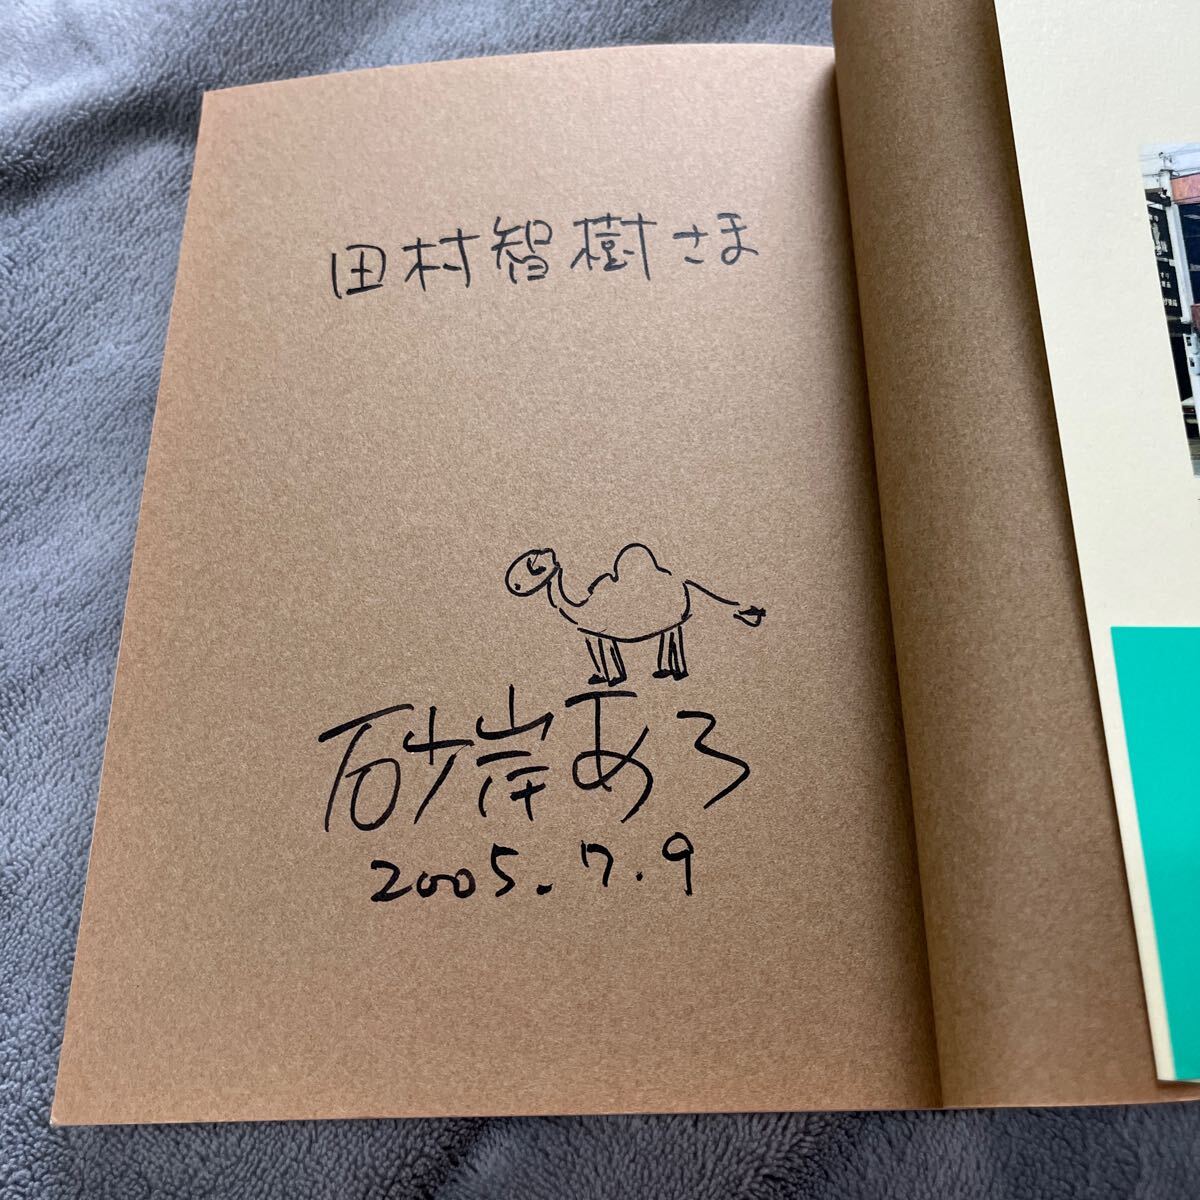 田村智樹さま
砂岸あろ
2005.7.9